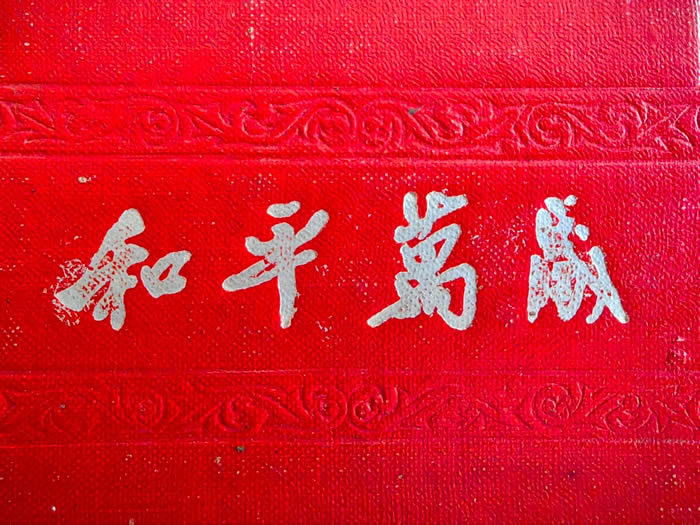 和平萬歲